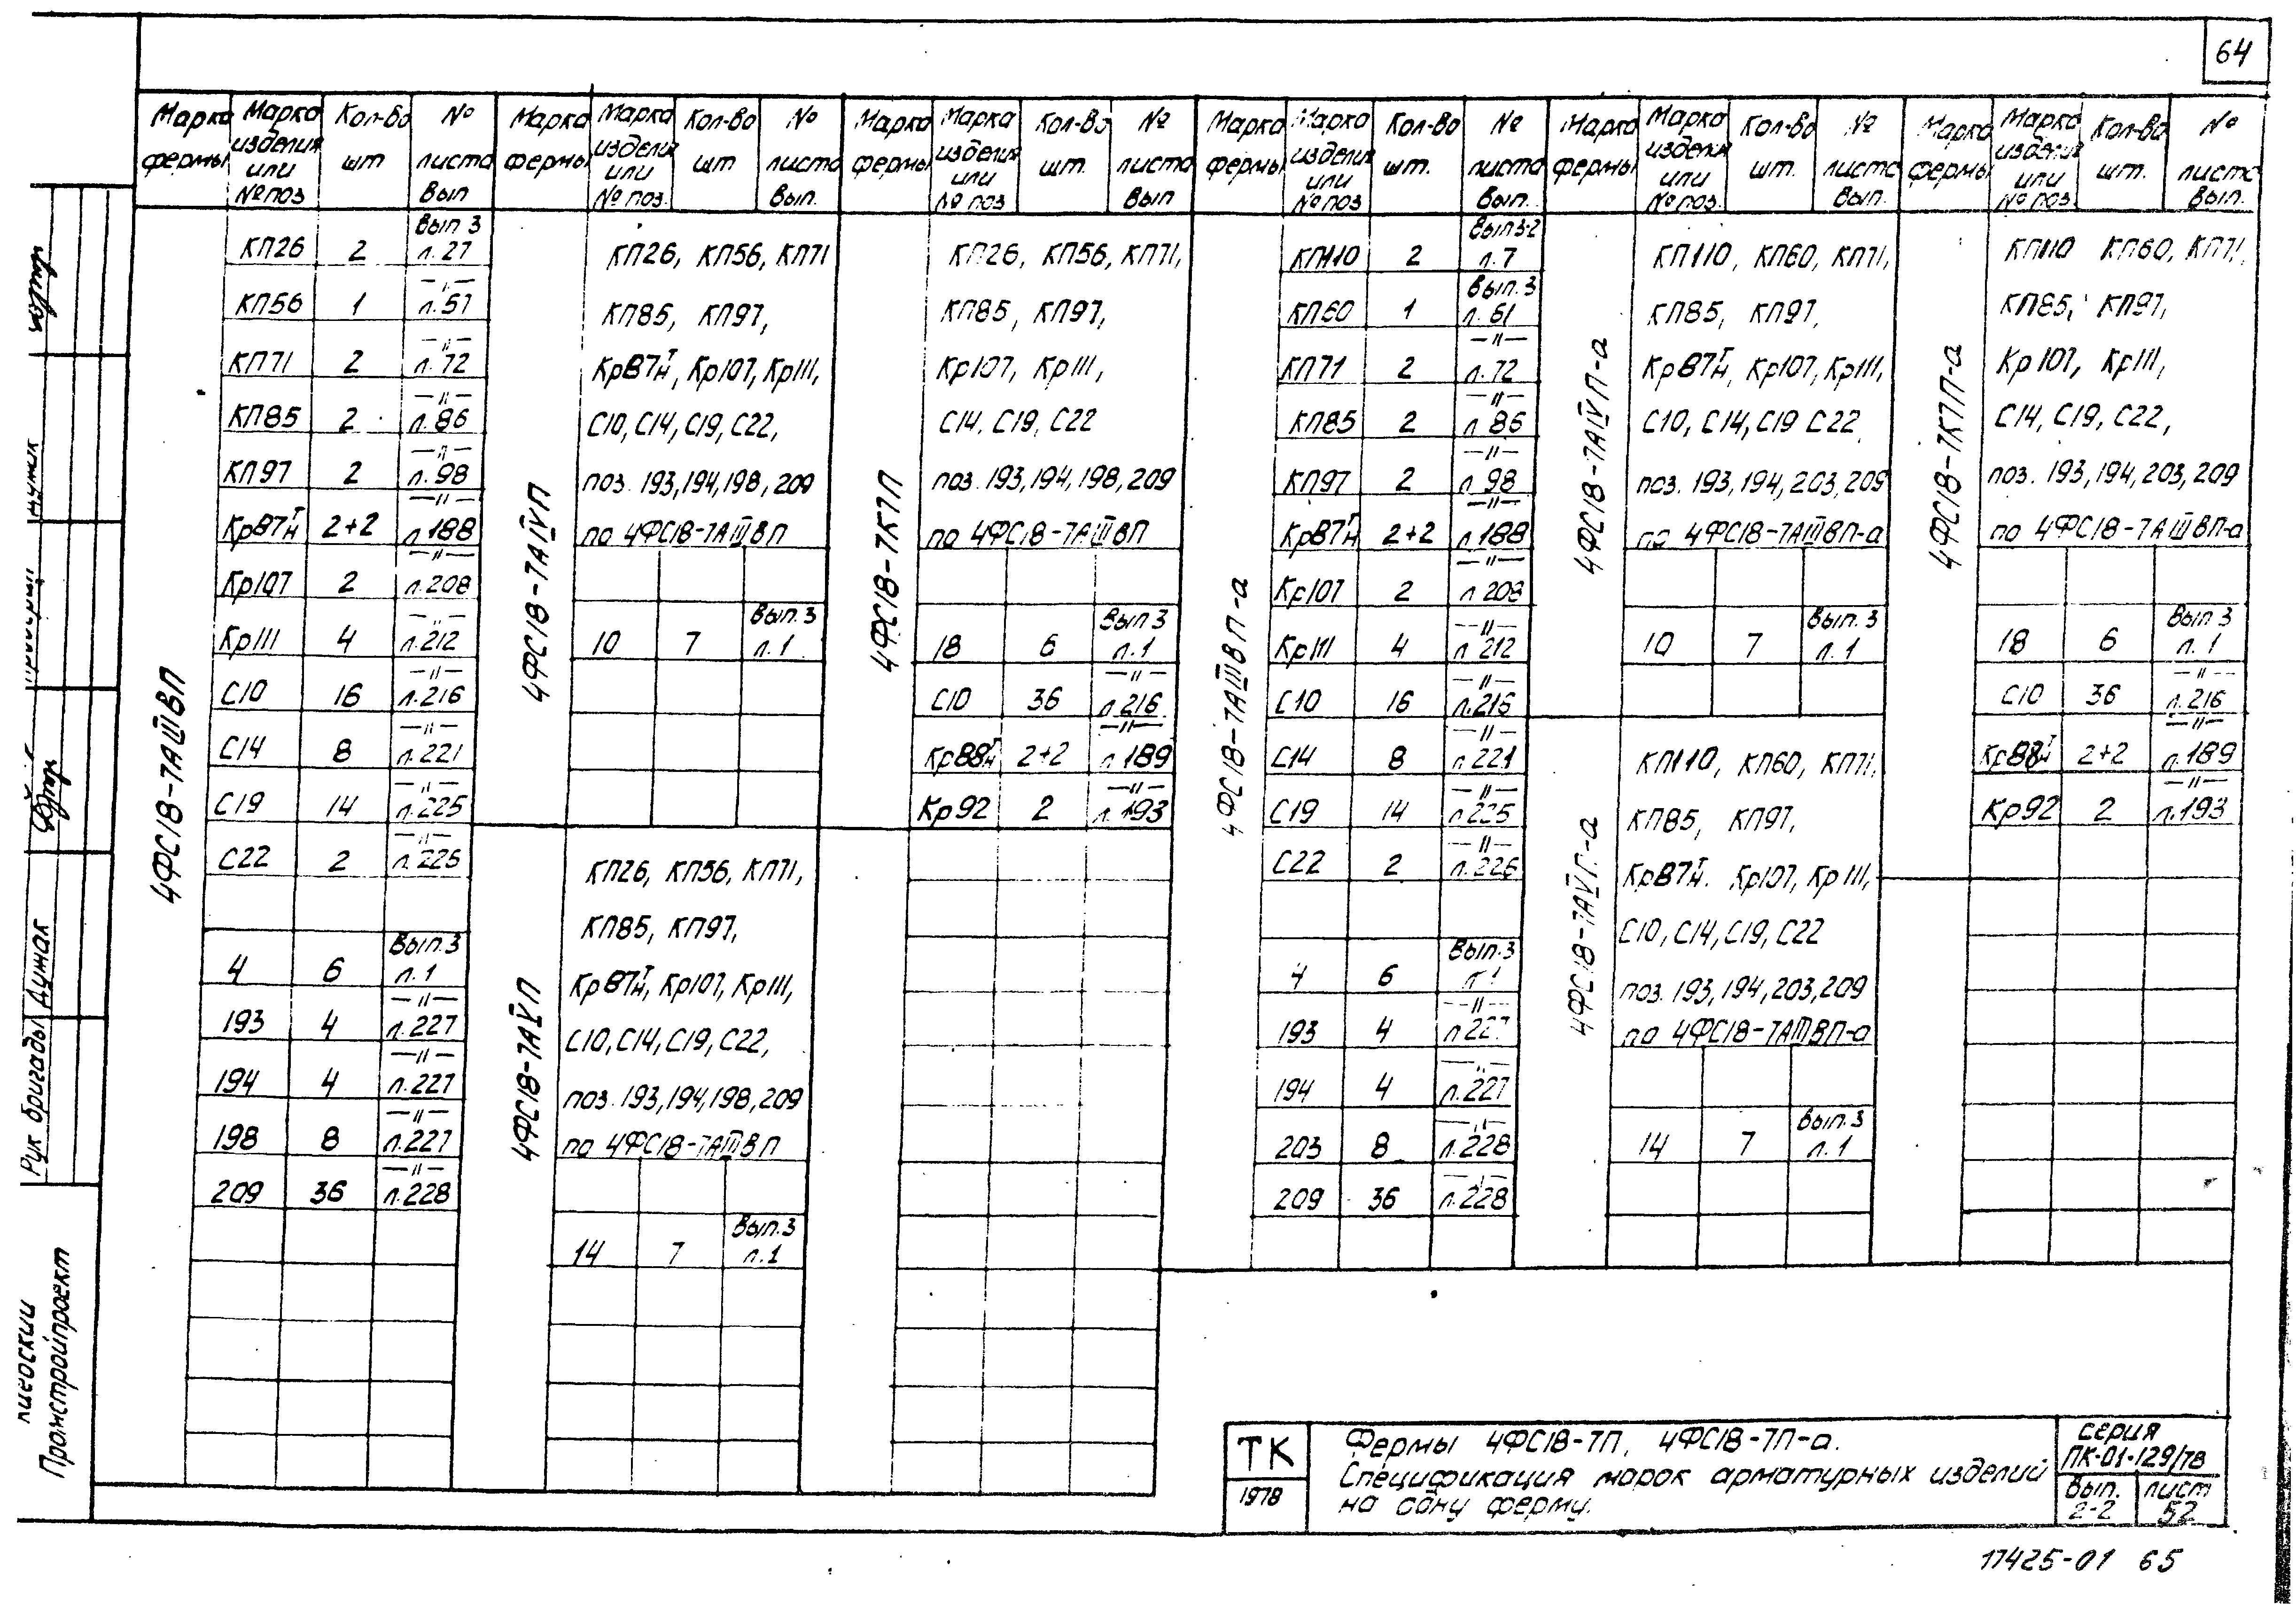 64
Марка фермы | Марка изделия или № поз | Кол-во шт | № листа Вып
4ФС18-7АIIIВП
КП26 | 2 | Вып 3 л.27
КП56 | 1 | —〃— л.57
КП71 | 2 | —〃— л.72
КП85 | 2 | —〃— л.86
КП97 | 2 | —〃— л.98
Кр87Т/Н | 2+2 | —〃— л.188
Кр107 | 2 | —〃— л.208
Кр111 | 4 | —〃— л.212
С10 | 16 | —〃— л.216
С14 | 8 | —〃— л.221
С19 | 14 | —〃— л.225
С22 | 2 | —〃— л.226
4 | 6 | Вып.3 л.1
193 | 4 | —〃— л.227
194 | 4 | —〃— л.227
198 | 8 | —〃— л.227
209 | 36 | —〃— л.228
Марка фермы | Марка изделия или № поз. | Кол-во шт | № листа Вып.
4ФС18-7АIVП
КП26, КП56, КП71
КП85, КП97,
Кр87Т/Н, Кр107, Кр111,
С10, С14, С19, С22,
поз. 193, 194, 198, 209
по 4ФС18-7АIIIВП
10 | 7 | Вып.3 л.1
4ФС18-7АVП
КП26, КП56, КП71,
КП85, КП97,
Кр87Т/Н, Кр107, Кр111,
С10, С14, С19, С22,
поз. 193, 194, 198, 209
по 4ФС18-7АIIIВП
14 | 7 | Вып.3 л.1
Марка фермы | Марка изделия или № поз | Кол-во шт. | № листа Вып
4ФС18-7К7П
КП26, КП56, КП71,
КП85, КП97,
Кр107, Кр111,
С14, С19, С22
поз. 193, 194, 198, 209
по 4ФС18-7АIIIВП
18 | 6 | Вып 3 л.1
С10 | 36 | —〃— л.216
Кр88Т/Н | 2+2 | —〃— л.189
Кр92 | 2 | —〃— л.193
Марка фермы | Марка изделия или № поз | Кол-во шт. | № листа Вып.
4ФС18-7АIIIВП-а
КП110 | 2 | Вып 3-2 л.7
КП60 | 1 | Вып.3 л.61
КП71 | 2 | —〃— л.72
КП85 | 2 | —〃— л 86
КП97 | 2 | —〃— л 98
Кр87Т/Н | 2+2 | —〃— л.188
Кр107 | 2 | —〃— л 208
Кр111 | 4 | —〃— л 212
С10 | 16 | —〃— л.216
С14 | 8 | —〃— л.221
С19 | 14 | —〃— л.225
С22 | 2 | —〃— л.226
4 | 6 | Вып.3 л 1
193 | 4 | —〃— л 227
194 | 4 | —〃— л.227
203 | 8 | —〃— л.228
209 | 36 | —〃— л.228
Марка фермы | Марка изделия или № поз. | Кол-во шт. | № листа Вып.
4ФС18-7АIVП-а
КП110, КП60, КП71,
КП85, КП97,
Кр87Т/Н, Кр107, Кр111,
С10, С14, С19 С22
поз. 193, 194, 203, 209
по 4ФС18-7АIIIВП-а
10 | 7 | Вып.3 л.1
4ФС18-7АVП-а
КП110, КП60, КП71,
КП85, КП97,
Кр87Т/Н. Кр107, Кр111,
С10, С14, С19, С22
поз. 193, 194, 203, 209
по 4ФС18-7АIIIВП-а
14 | 7 | Вып.3 л.1
Марка фермы | Марка изделия или № поз. | Кол-во шт. | № листа Вып.
4ФС18-7К7П-а
КП110 КП60, КП71,
КП85, КП97,
Кр107, Кр111,
С14, С19, С22,
поз. 193, 194, 203, 209
по 4ФС18-7АIIIВП-а
18 | 6 | Вып 3 л.1
С10 | 36 | —〃— л.216
Кр88Т/Н | 2+2 | —〃— л.189
Кр92 | 2 | —〃— л.193
Рук бригады Дужак
Промстройпроект
ТК
1978
Фермы 4ФС18-7П, 4ФС18-7П-а.
Спецификация марок арматурных изделий
на одну ферму.
серия
ПК-01-129/78
Вып. 2-2
лист 52
17425-01 65